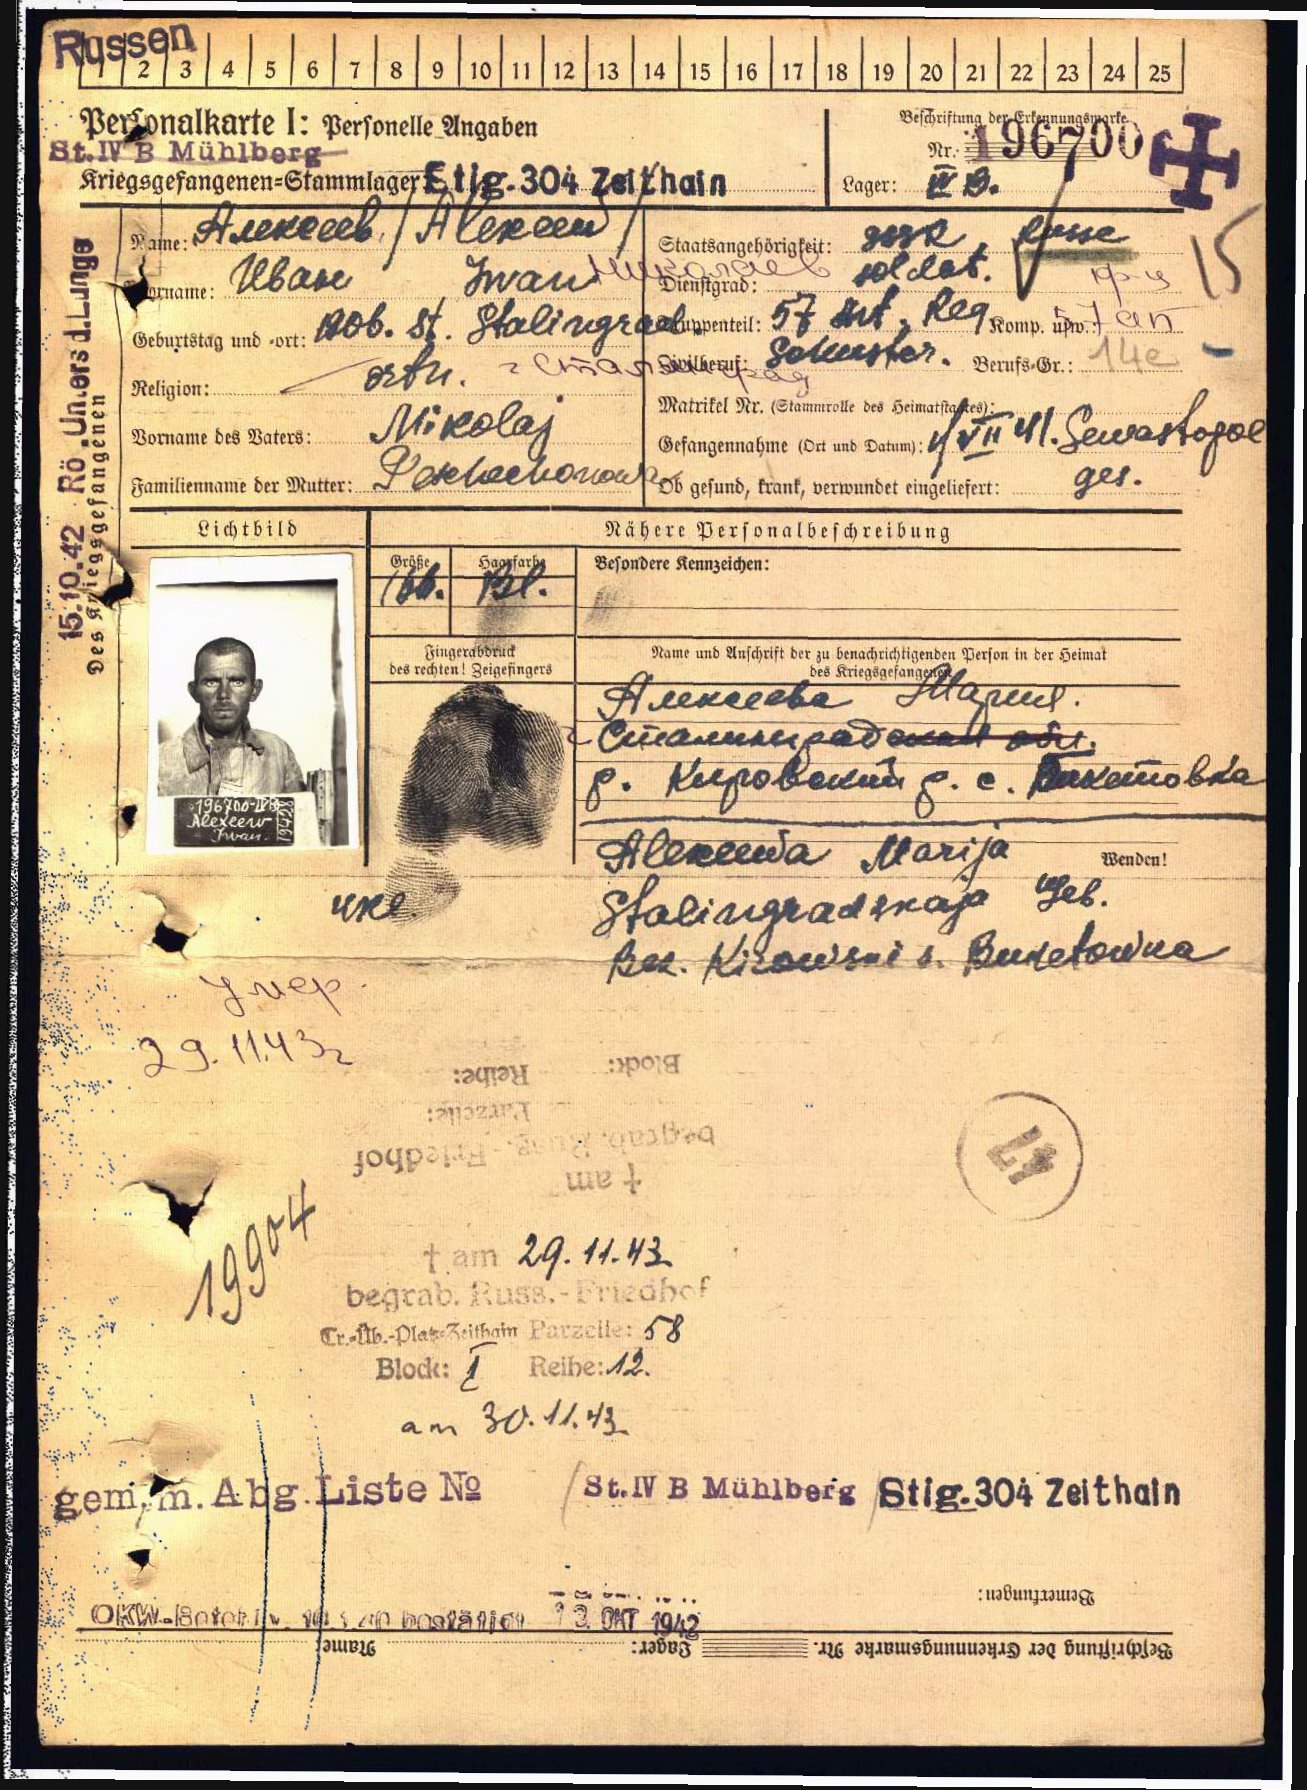 Russen
1 2 3 4 5 6 7 8 9 10 11 12 13 14 15 16 17 18 19 20 21 22 23 24 25
Personalkarte I: Personelle Angaben
St. IV B Mühlberg
Kriegsgefangenen=Stammlager: Stlg. 304 Zeithain
Beschriftung der Erkennungsmarke
Nr. 196700
Lager: IV B.
15
Name: Алексеев / Alexeew /
Vorname: Иван Iwan Николаев
Geburtstag und -ort: 1906. St. Stalingrad.
г Сталинград
Religion: orth.
Vorname des Vaters: Nikolaj
Familienname der Mutter:
Staatsangehörigkeit: Russe
Dienstgrad: soldat. кр-ц
Truppenteil: 57 Art. Reg Komp. usw.: 57 ап
Zivilberuf: Schuster. Berufs-Gr.: 14e
Matrikel Nr. (Stammrolle des Heimatstaates):
Gefangennahme (Ort und Datum): Sewastopol
Ob gesund, krank, verwundet eingeliefert: ges.
15.10.42 Rö. Unters d. Lunge
Des Kriegsgefangenen
Lichtbild
Nähere Personalbeschreibung
Größe
166.
Haarfarbe
Bl.
Besondere Kennzeichen:
Fingerabdruck
des rechten! Zeigefingers
Name und Anschrift der zu benachrichtigenden Person in der Heimat
des Kriegsgefangenen
Алексеева Мария.
Сталинградская обл.
р. Кировский р. с. Бикетовка
196700-IVB
Alexeew
Iwan.
Alexeewa Marija
Wenden!
Stalingradskaja Geb.
Bez. Kirowski s. Beketowka
Умер
29.11.43г
Block:
Reihe:
Parzelle:
begrab. Russ.-Friedhof
† am
47
19904
† am 29.11.43
begrab. Russ.-Friedhof
Tr.-Üb.-Platz-Zeithain Parzelle: 58
Block: I Reihe: 12.
am 30.11.43
gem. m. Abg. Liste № / St. IV B Mühlberg / Stlg. 304 Zeithain
Bemerkungen:
OKW 13 OKT 1942
Beschriftung der Erkennungsmarke Nr. Lager: Name: